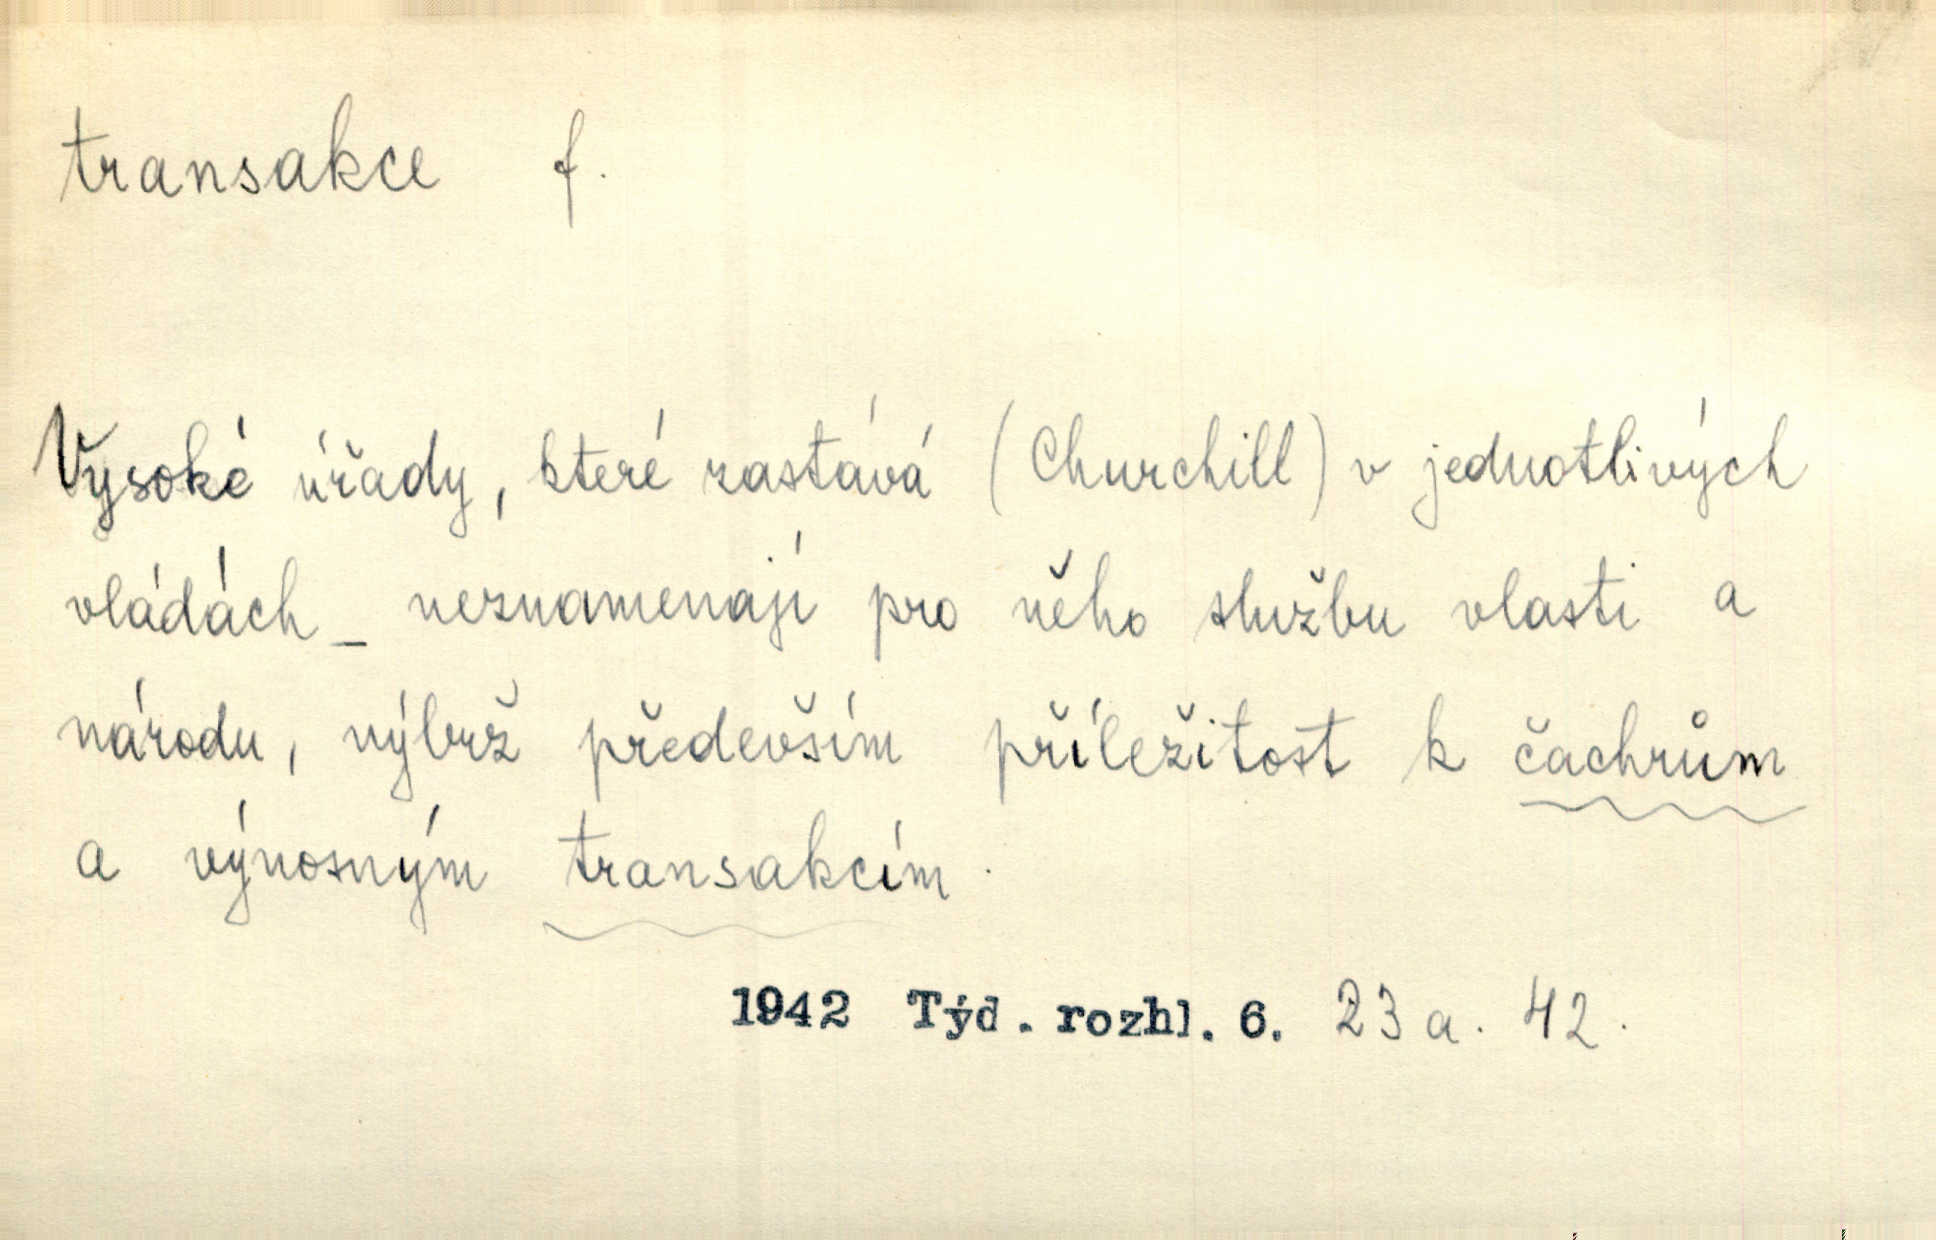 transakce f.
Vysoké úřady, které zastává (Churchill) v jednotlivých
vládách _ neznamenají pro něho službu vlasti a
národu, nýbrž především příležitost k čachrům
a výnosným transakcím.
1942 Týd. rozhl. 6. 23 a. 42.